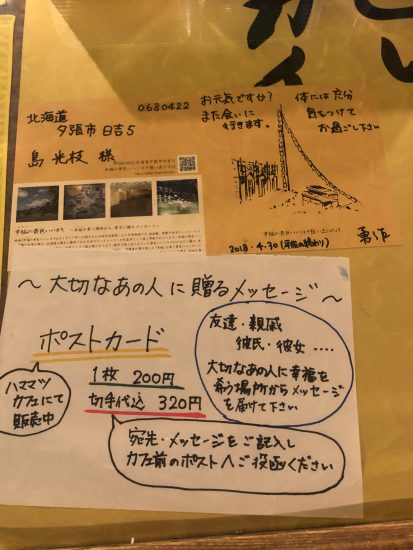 0680422
北海道
夕張市 日吉5
島 光枝 様
幸福の黄色いハンカチ想い出ひろば
お元気ですか?
また会いに
行きます。
体には充分
気をつけて
お過ごし下さい
幸福の黄色いハンカチ想い出ひろば
2018.4.30(平成の終わり)
勇作
～大切なあの人に贈るメッセージ～
ポストカード
1枚 200円
切手代込 320円
ハママツ
カフェにて
販売中
友達・親戚
彼氏・彼女 ....
大切なあの人に幸福を
希う場所からメッセージ
を届けて下さい
宛先・メッセージをご記入し
カフェ前のポストへご投函ください